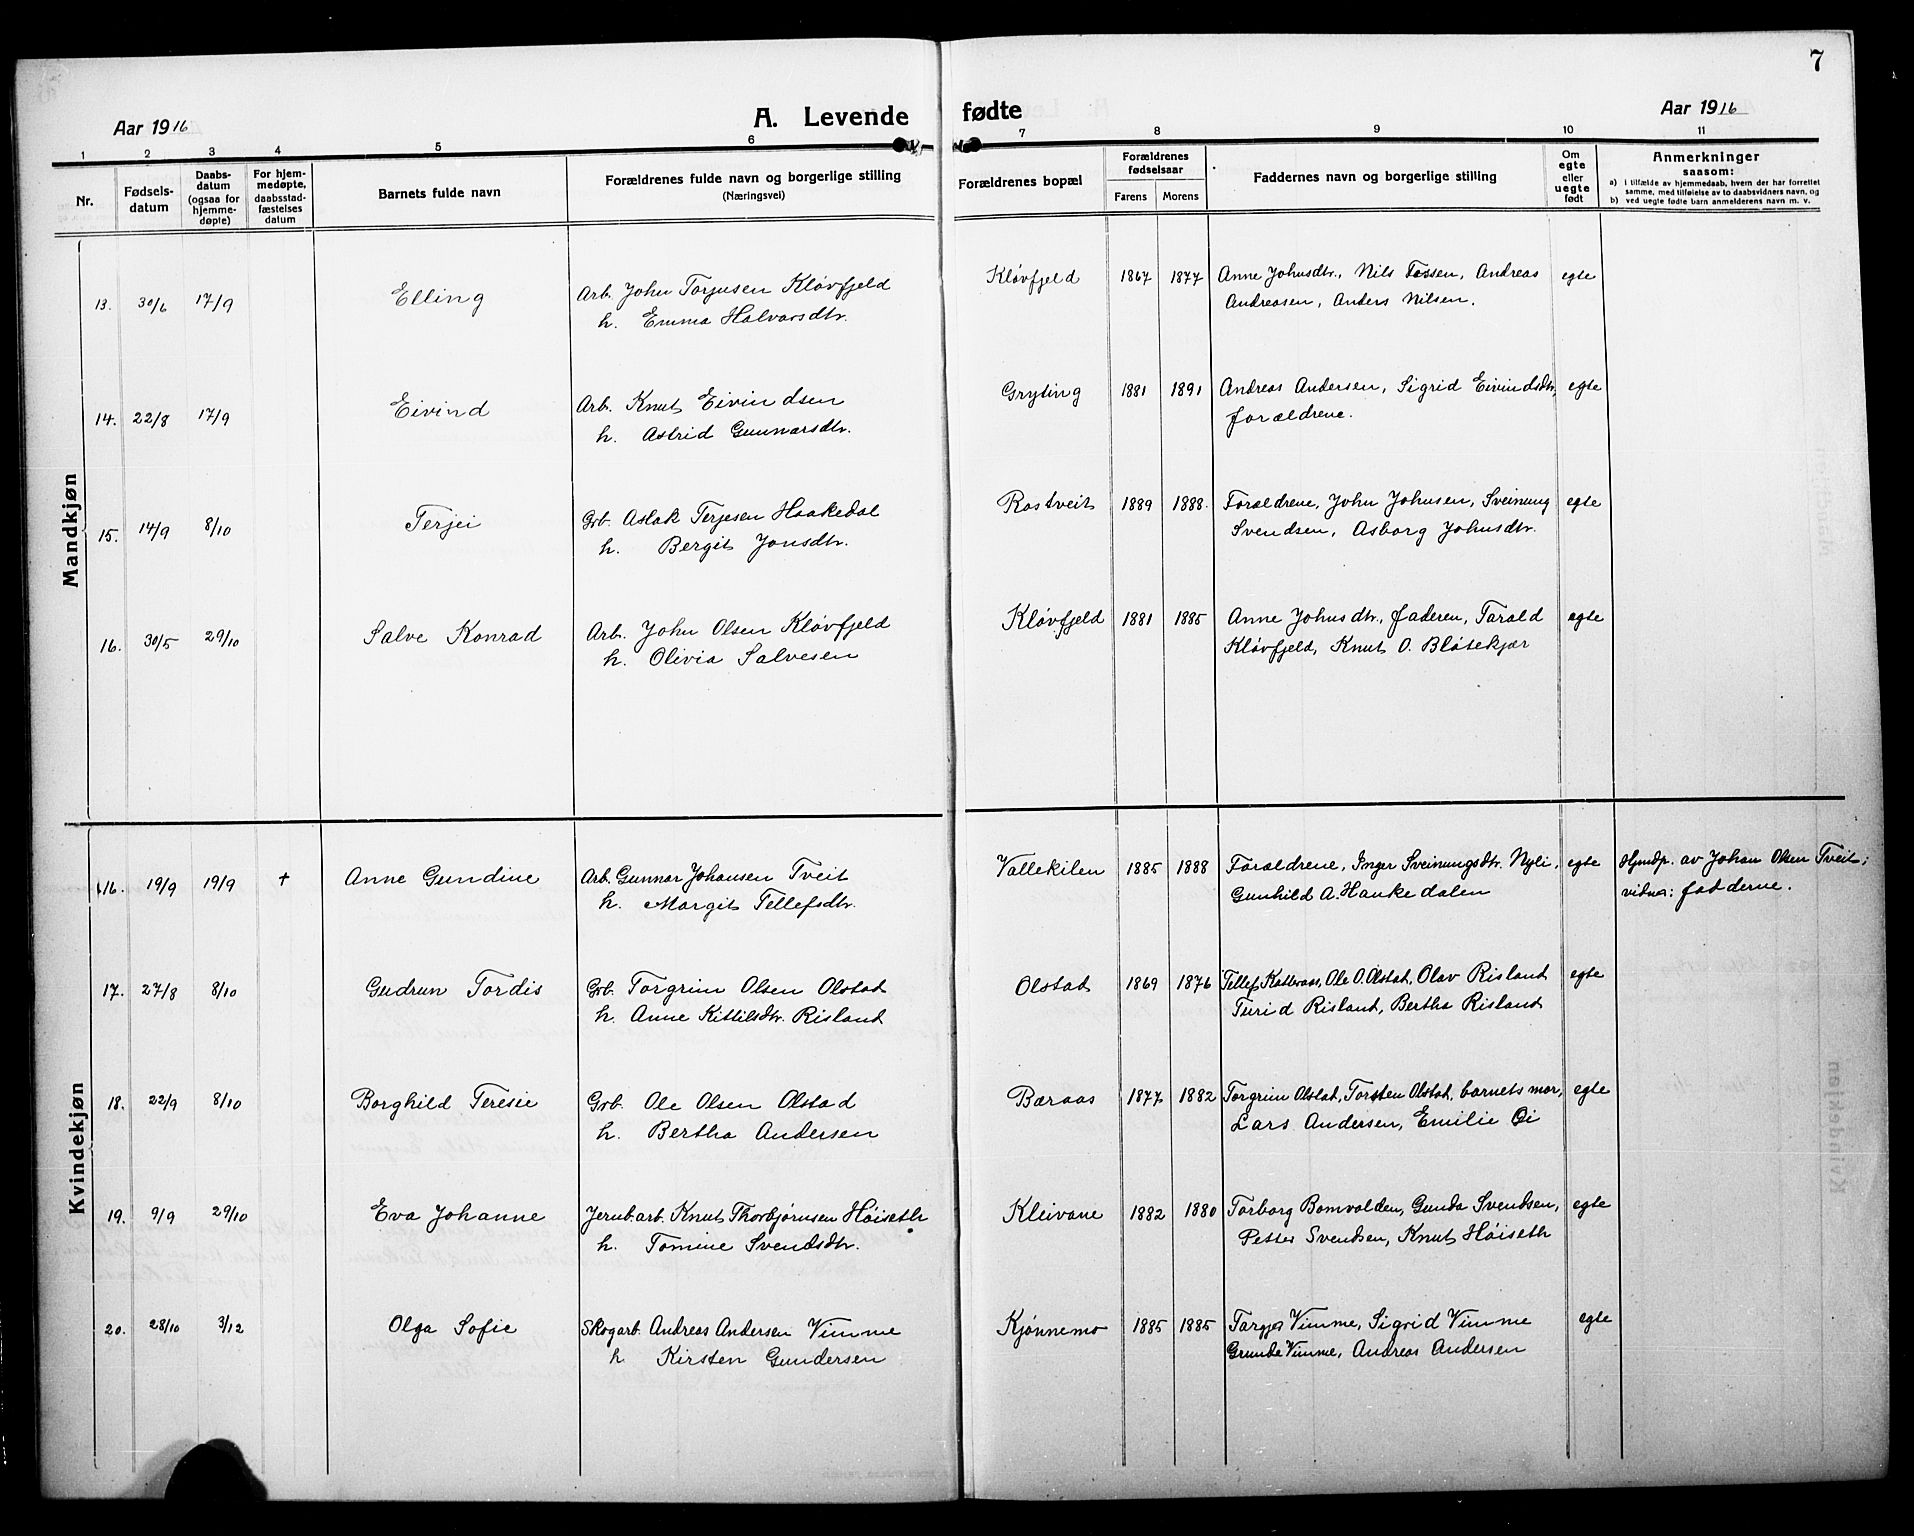 7
Aar 1916
A. Levende fødte
Aar 1916
1 2 3 4 5 6 7 8 9 10 11
Nr.
Fødsels-
datum
Daabs-
datum
(ogsaa for
hjemme-
døpte)
For hjem-
medøpte,
daabsstad-
fæstelses
datum
Barnets fulde navn
Forældrenes fulde navn og borgerlige stilling
(Næringsvei)
Forældrenes bopæl
Forældrenes
fødselsaar
Farens Morens
Faddernes navn og borgerlige stilling
Om
egte
eller
uegte
født
Anmerkninger
saasom:
a) i tilfælde av hjemmedaab, hvem der har forrettet
samme, med tilføielse av to daabsvidners navn, og
b) ved uegte fødte barn anmelderens navn m. v.
Mandkjøn
13. 30/6 17/9 Elling Arb. John Torjusen Kløvfjeld Kløvfjeld 1867 1877 Anne Johnsdtr., Nils Tossen, Andreas egte
h. Emma Halvorsdtr. Andreasen, Anders Nilsen.
14. 22/8 17/9 Eivind Arb. Knut Eivindsen Gryting 1881 1891 Andreas Andersen, Sigrid Eivindsdtr, egte
h. Astrid Gunnarsdtr. forældrene.
15. 14/9 8/10 Terjei Grb. Aslak Terjesen Haakedal Rostveit 1889 1888. Forældrene, John Johnsen, Sveinung egte
h. Bergit Jonsdtr. Svendsen, Asborg Johnsdtr.
16. 30/5 29/10 Salve Konrad Arb. John Olsen Kløvfjeld Kløvfjeld 1881 1885 Anne Johnsdtr, faderen, Tarald egte
h. Olivia Salvesen Kløvfjeld, Knut O. Bløtekjær
Kvindekjøn
16. 19/9 19/9 + Anne Gundine Arb. Gunnar Johansen Tveit Vallekilen 1885 1888 Forældrene, Inger Sveinungsdtr. Nyli, egte Hjmdp. av Johan Olsen Tveit;
h. Margit Tellefsdtr. Gunhild A. Haukedalen vidner: fadderne.
17. 27/8 8/10 Gudrun Tordis Grb. Torgrim Olsen Olstad Olstad 1869 1876 Tellef Katteraas, Ole O. Olstad, Olav Risland egte
h. Anne Kittilsdtr. Risland Turid Risland, Bertha Risland
18. 22/9 8/10 Borghild Teresie Grb. Ole Olsen Olstad Bæraas 1877 1882 Torgrim Olstad, Torsten Olstad, barnets mor, egte
h. Bertha Andersen Lars Andersen, Emilie Øi
19. 9/9 29/10 Eva Johanne Jernb.arb. Knut Thorbjørnsen Høiseth Kleivane 1882 1880 Torborg Bomvolden, Gunda Svendsen, egte
h. Tomine Svendsdtr. Petter Svendsen, Knut Høiseth
20. 28/10 3/12 Olga Sofie Skogarb. Andreas Andersen Vimme Kjønnemo 1885 1885 Targjer Vimme, Sigrid Vimme egte
h Kirsten Gundersen Grunda Vimme, Andreas Andersen